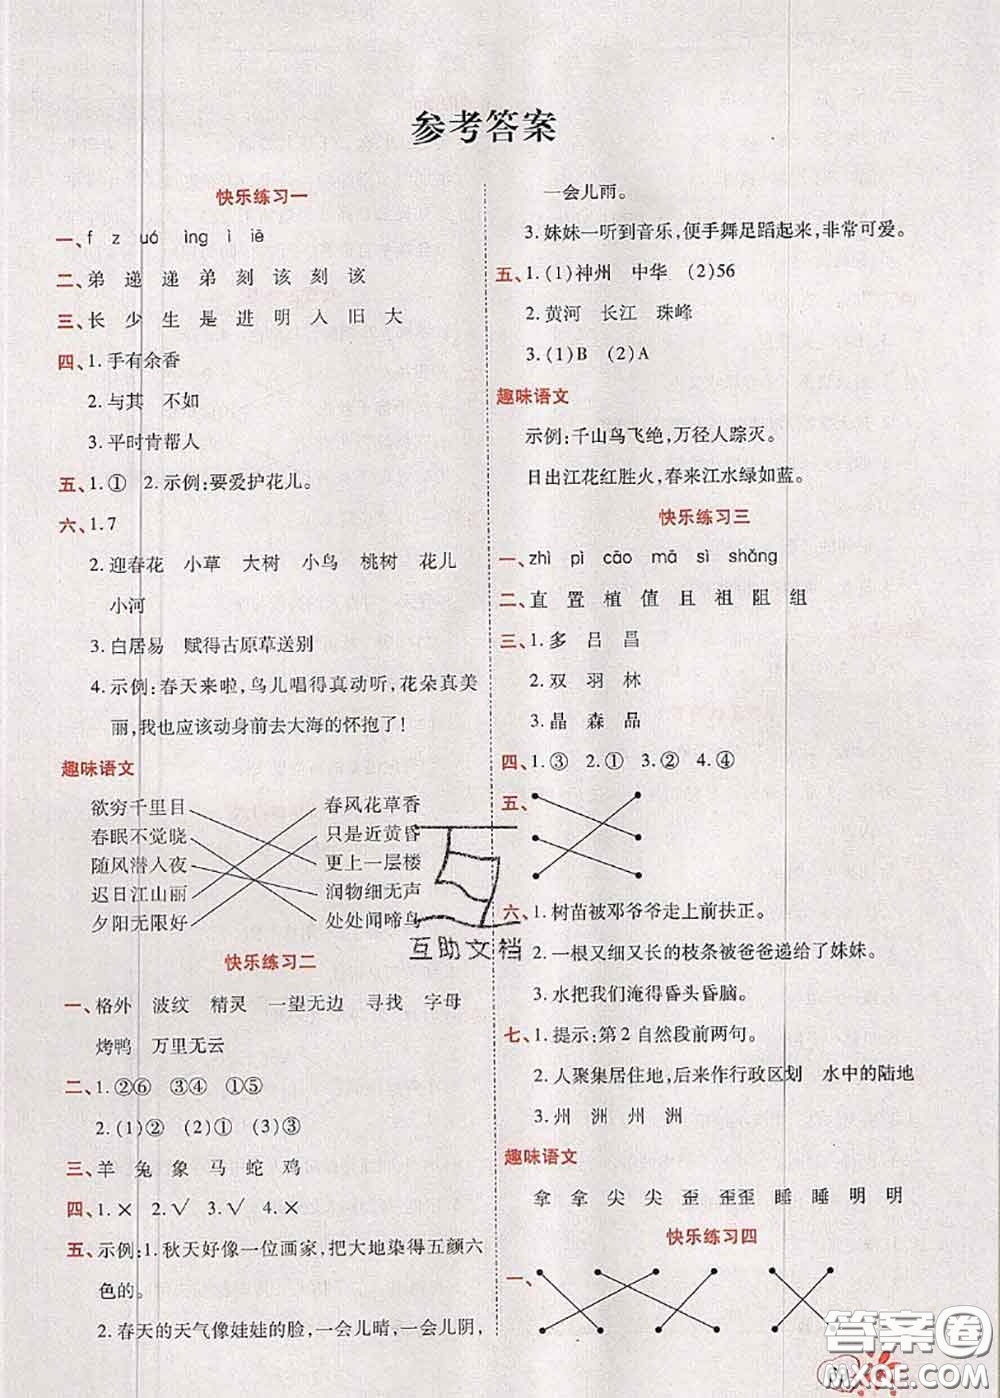 参考答案
快乐练习一
一、f z uó ìng ì iē
二、弟 递 递 弟 刻 该 刻 该
三、长 少 生 是 进 明 入 旧 大
四、1.手有余香
2.与其 不如
3.平时肯帮人
五、1.① 2.示例:要爱护花儿。
六、1.7
2.迎春花 小草 大树 小鸟 桃树 花儿
小河
3.白居易 赋得古原草送别
4.示例:春天来啦,鸟儿唱得真动听,花朵真美
丽,我也应该动身前去大海的怀抱了!
趣味语文
欲穷千里目 春风花草香
春眠不觉晓 只是近黄昏
随风潜入夜 更上一层楼
迟日江山丽 润物细无声
夕阳无限好 处处闻啼鸟
快乐练习二
一、格外 波纹 精灵 一望无边 寻找 字母
烤鸭 万里无云
二、1.②⑥ ③④ ①⑤
2.(1)② (2)① (3)③
三、羊 兔 象 马 蛇 鸡
四、1.× 2.√ 3.√ 4.×
五、示例:1.秋天好像一位画家,把大地染得五颜六
色的。
2.春天的天气像娃娃的脸,一会儿晴,一会儿阴,
一会儿雨。
3.妹妹一听到音乐,便手舞足蹈起来,非常可爱。
五、1.(1)神州 中华 (2)56
2.黄河 长江 珠峰
3.(1)B (2)A
趣味语文
示例:千山鸟飞绝,万径人踪灭。
日出江花红胜火,春来江水绿如蓝。
快乐练习三
一、zhì pì cāo mā sì shǎng
二、直 置 植 值 且 祖 阻 组
三、1.多 吕 昌
2.双 羽 林
3.晶 森 品
四、1.③ 2.① 3.② 4.④
五、
六、1.树苗被邓爷爷走上前扶正。
2.一根又细又长的枝条被爸爸递给了妹妹。
3.水把我们淹得昏头昏脑。
七、1.提示:第2自然段前两句。
2.人聚集居住地,后来作行政区划 水中的陆地
3.州 洲 州 洲
趣味语文
拿 拿 尖 尖 歪 歪歪 睡 睡 明 明
快乐练习四
一、
互助文档
答案圈
MXQE.COM